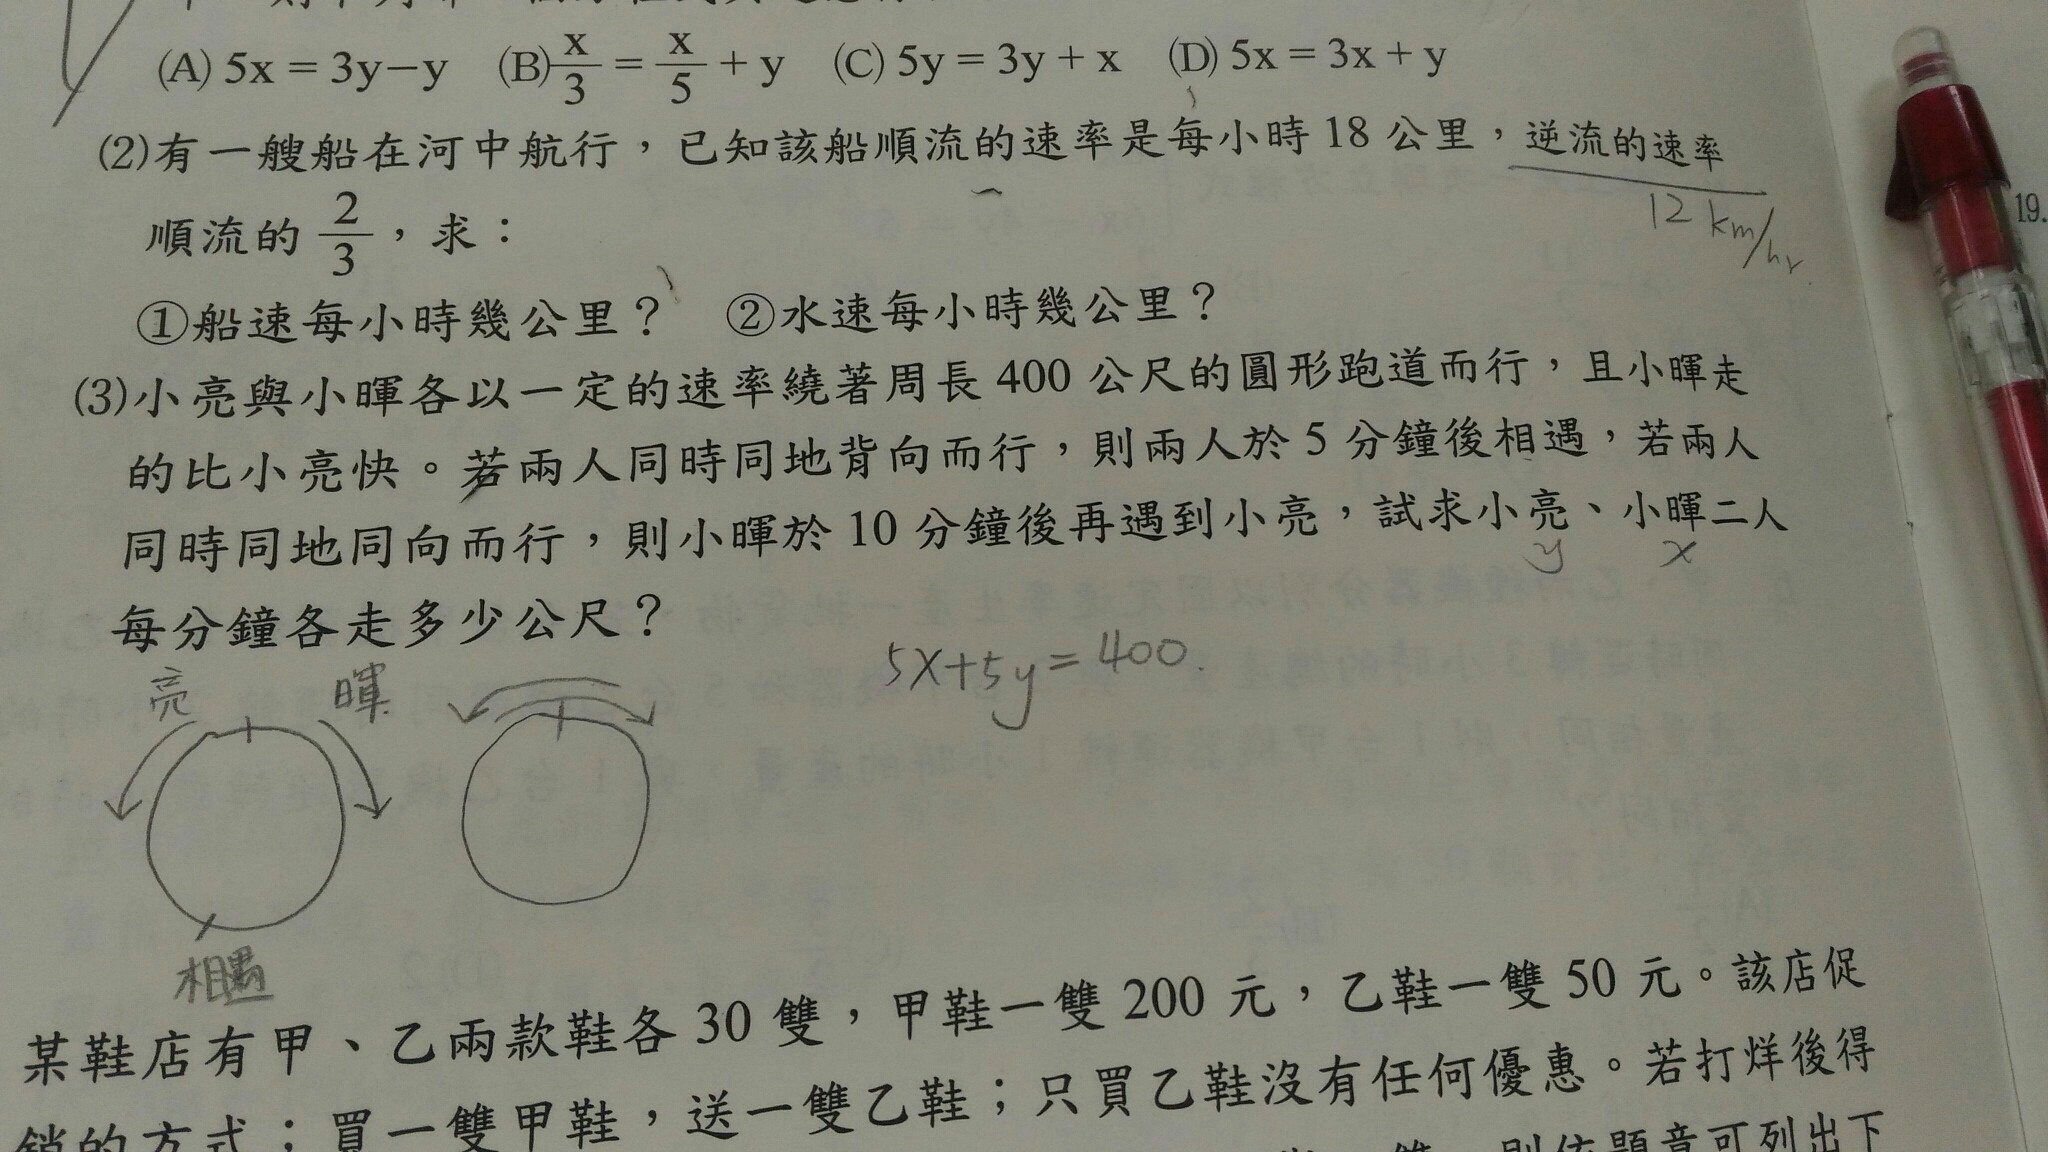 (A) 5x = 3y−y (B) x/3 = x/5 + y (C) 5y = 3y + x (D) 5x = 3x + y
(2)有一艘船在河中航行，已知該船順流的速率是每小時 18 公里，逆流的速率
12 km/hr
順流的 2/3，求：
①船速每小時幾公里？ ②水速每小時幾公里？
(3)小亮與小暉各以一定的速率繞著周長 400 公尺的圓形跑道而行，且小暉走
的比小亮快。若兩人同時同地背向而行，則兩人於 5 分鐘後相遇，若兩人
同時同地同向而行，則小暉於 10 分鐘後再遇到小亮，試求小亮、小暉二人
y x
每分鐘各走多少公尺？
5x+5y=400.
亮 暉
相遇
某鞋店有甲、乙兩款鞋各 30 雙，甲鞋一雙 200 元，乙鞋一雙 50 元。該店促
銷的方式：買一雙甲鞋，送一雙乙鞋；只買乙鞋沒有任何優惠。若打烊後得
則依題意可列出下
19.